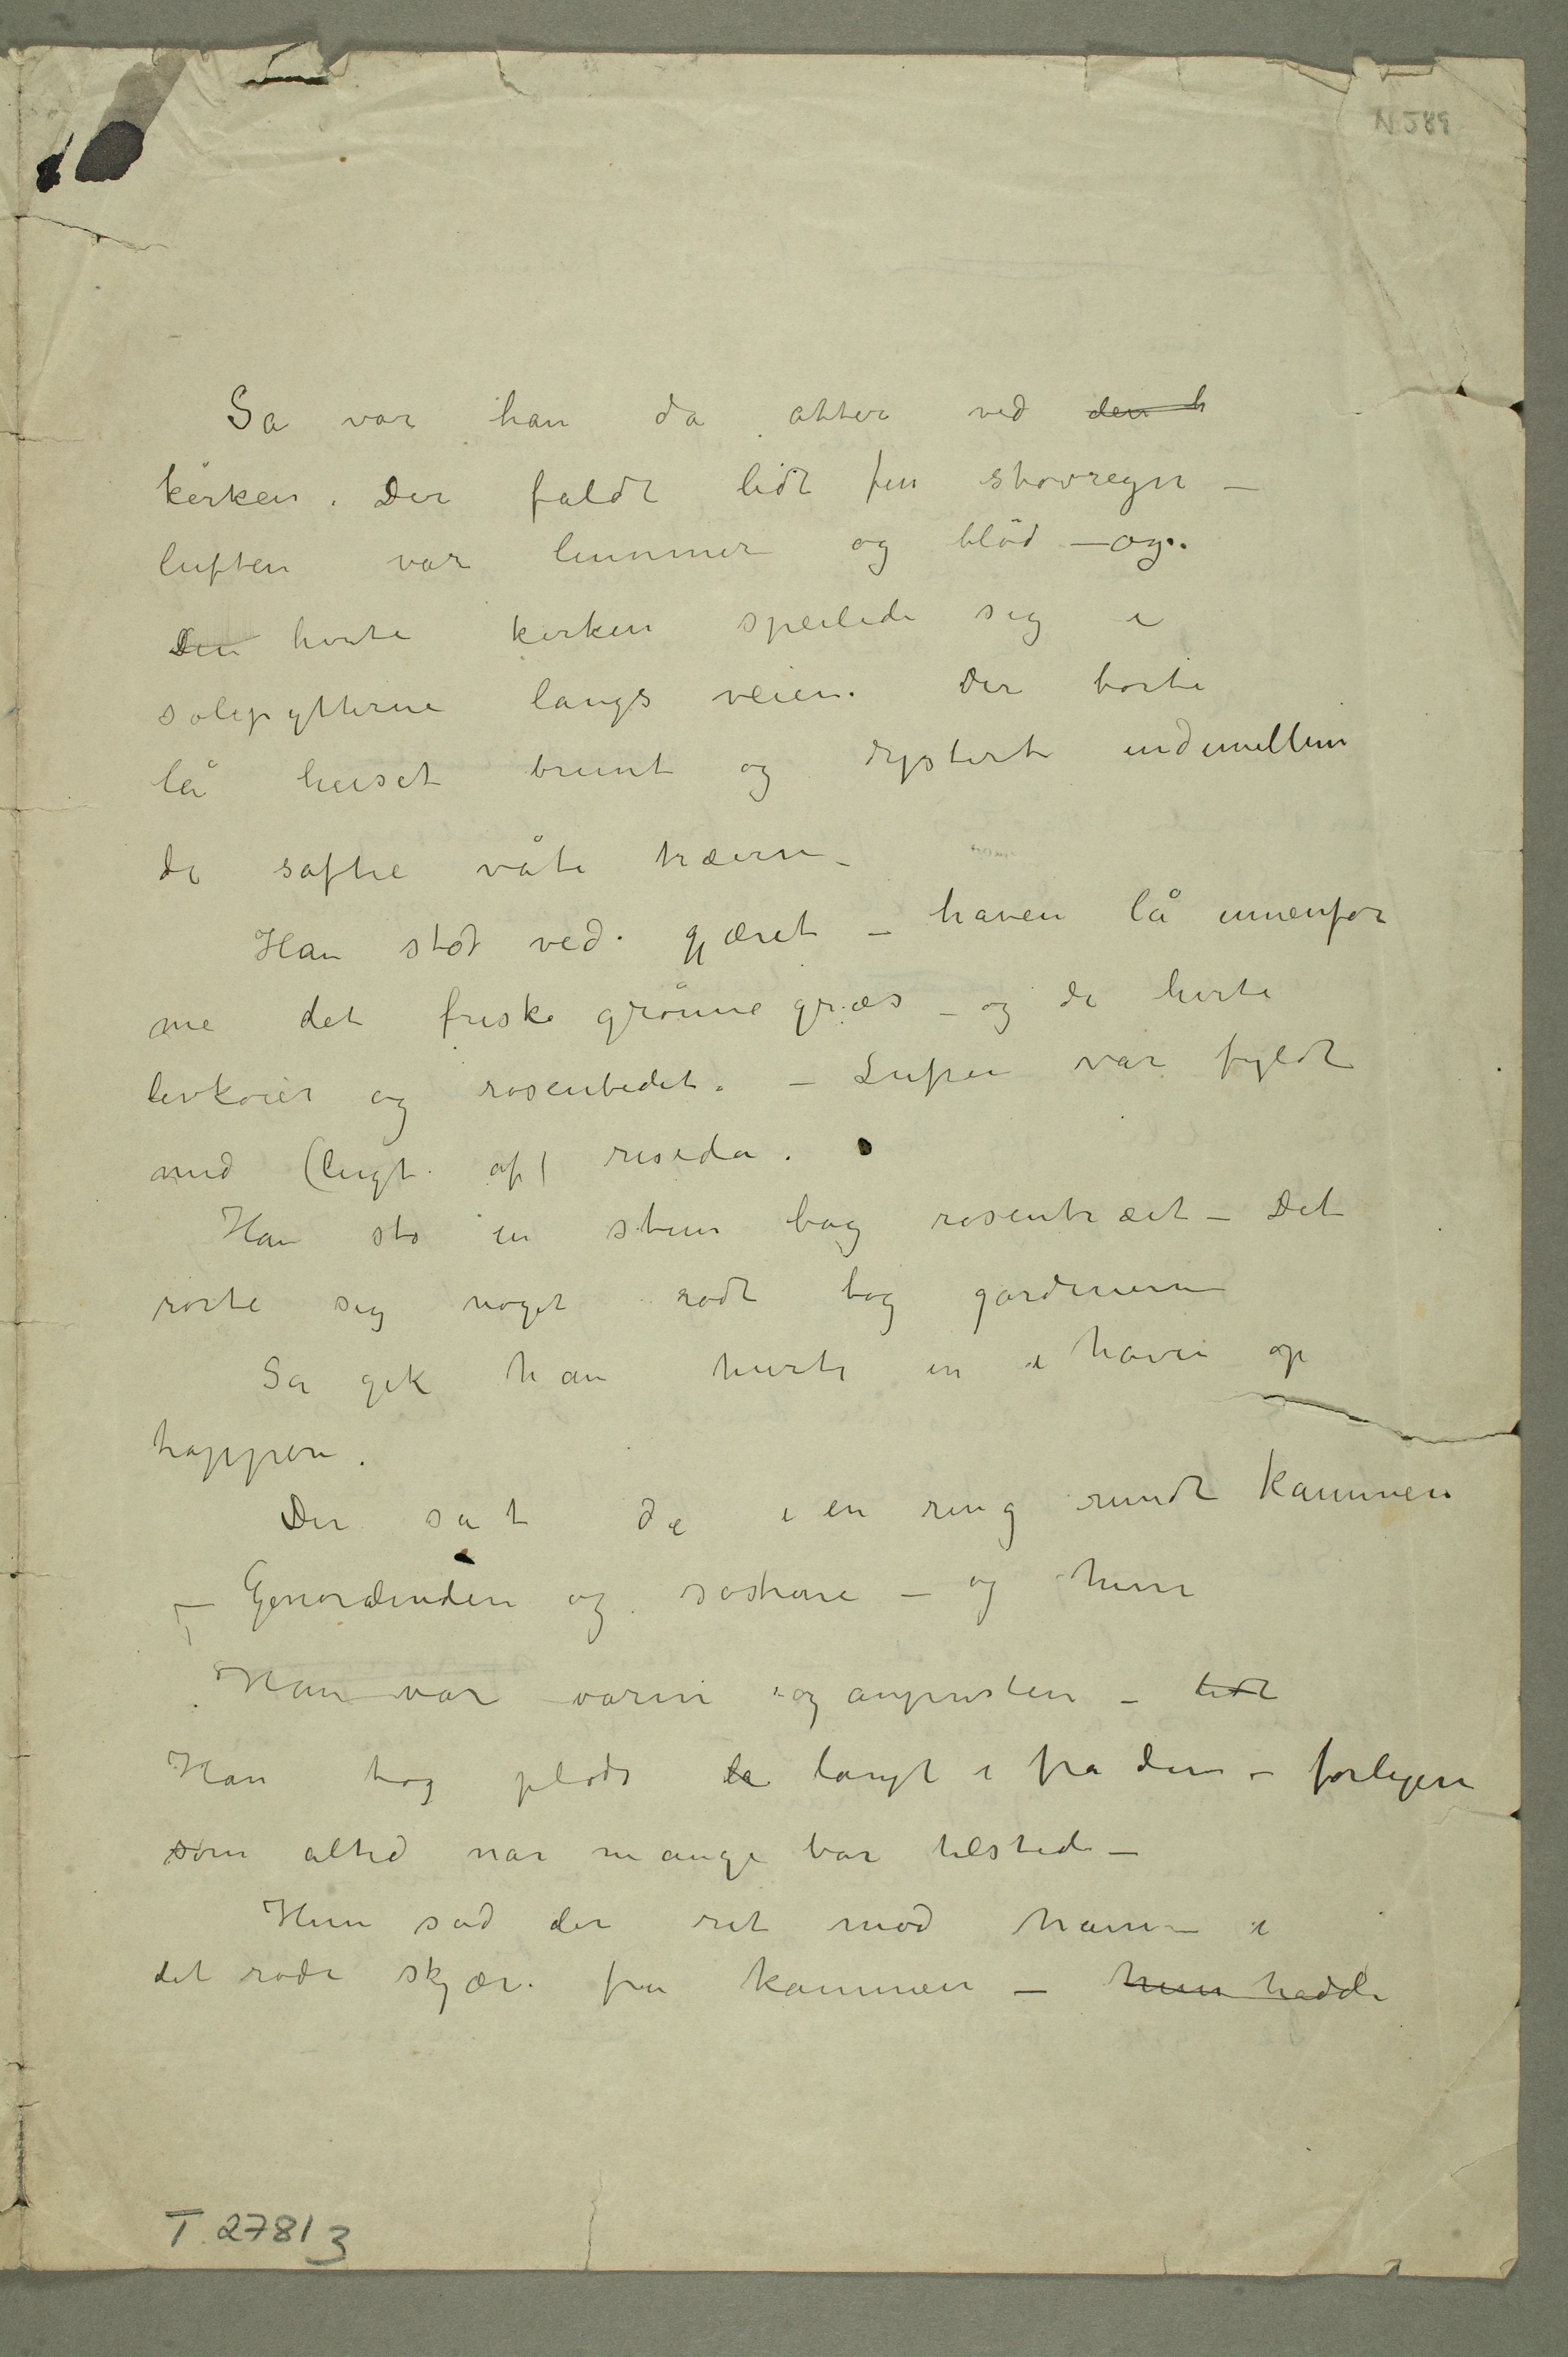 N 289
Så var han da atter ved den h
kirken. Der faldt lidt fin støvregn –
luften var lummer og blød – og.
Den hvite kirken speilede sig i
sølepytterne langs veien. Der borte
lå huset brunt og dystert indimellem
de saftie våte træerne –
Han stod ved gjæret – haven lå innenfor
me det friske grønne græs – og de hvite
levkøier og rosenbedet. – Luften var fyldt
med (lugt af) reseda.
Han sto en stun bag rosentræet – Det
rørte sig noget rødt bag gardinerne
Så gik han hurti in i haven op
trappen.
Der sat de i en ring rundt kaminen
– Generalinden og søstrene – og hun
Han var varm og anpusten – lidt
Han tog plads la langt i fra dem – forlegen
som altid når mange var tilstede –
Hun sad der ret mod ham i
det røde skjær fra kaminen – hun hadde
T 2781 3